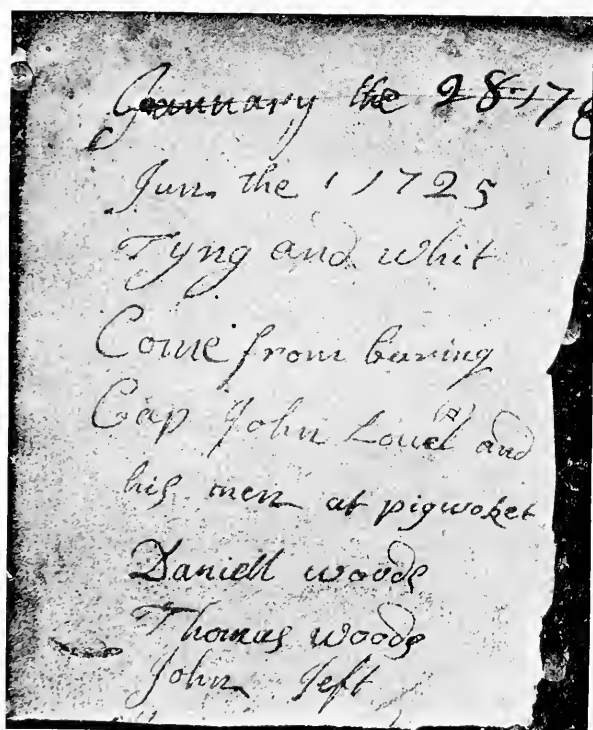 January the 28 176
Jun. the 1 1725
Tyng and whit
Come from buring
Cap John Louel and
his men at pigwoket
Daniell woods
Thomas woods
John Jeft